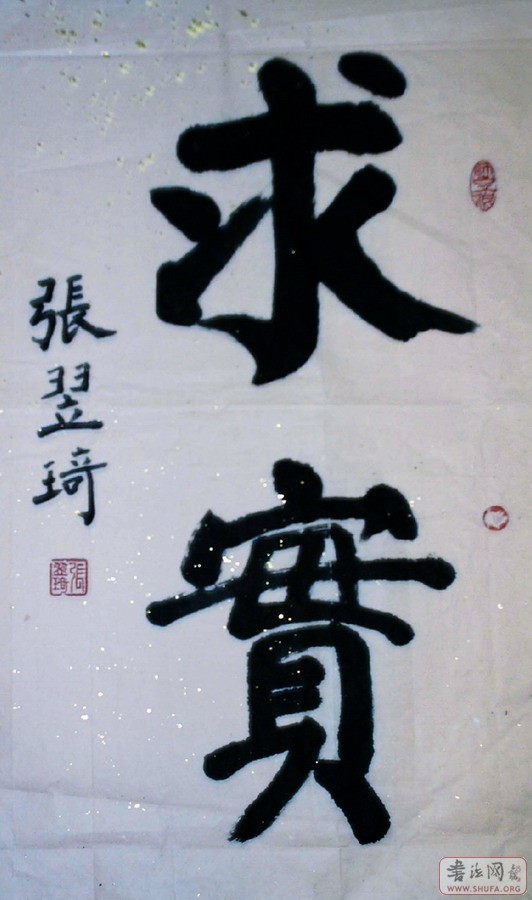 求實
張翌琦
張翌琦
书法网
WWW.SHUFA.ORG